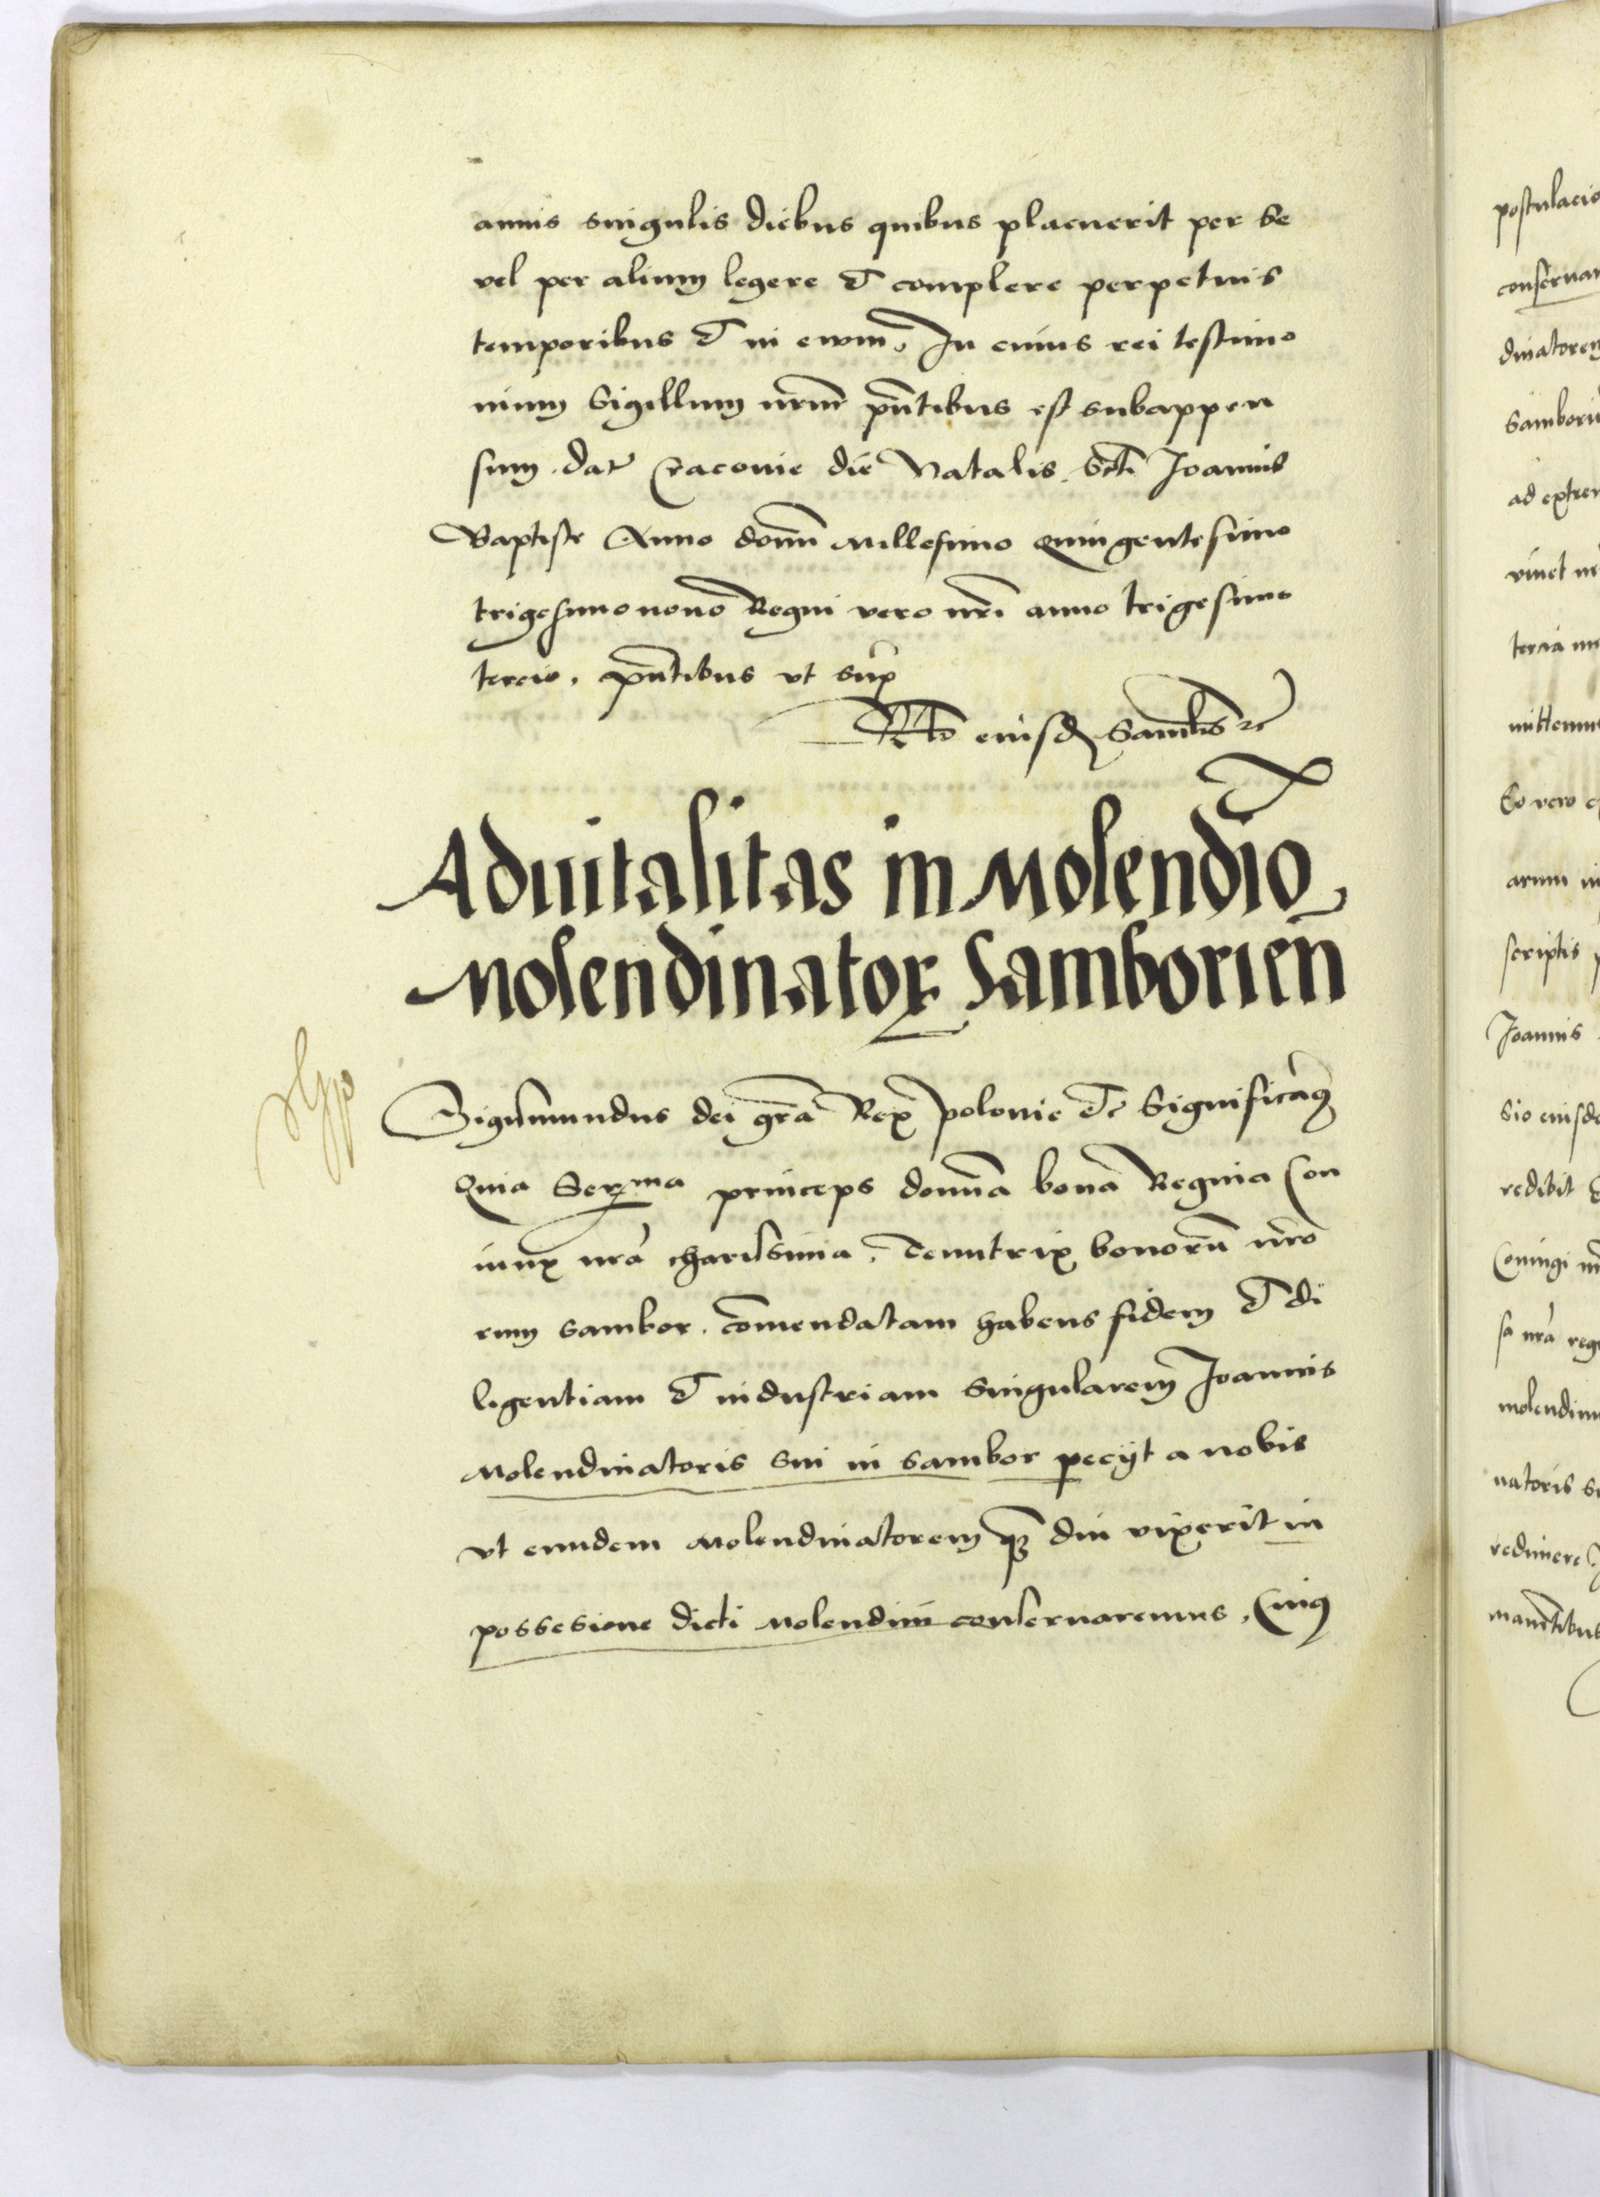 annis singulis diebus quibus placuerit per se
vel per alium legere & complere perpetuis
temporibus & in ewm̄. In cuius rei testimo
nium Sigillum nr̄m pn̄tibus est subappen
sum. dat̄ Cracovie die Natalis Scti Joannis
Baptiste Anno domi Millesimo Quingentesimo
trigesimo nono Regni vero nrī anno trigesimo
tercio. pn̄tibus ut supͣ
Rᵗᵒ eiusdꝫ
Advitalitas in Molendīo
Molendinatoꝝ Samborien̄
Sigismundus dei grā Rex polonie &c Significamꝰ
Quia Serᵐᵃ princeps domīa bona Regina Con
iunx nrā charissima. Tenutrix bonorū nrō
rum Sambor. cōmendatam habens fidem & di
ligentiam & industriam Singularem Joannis
Molendinatoris sui in Sambor peciit a nobis
ut eundem Molendinatorem qꝫ diu vixerit in
possesione dicti Molendini conservaremus. Cuiꝰ
postulacio
conservan
dinatorem
Sambori
ad extrem
vivet
tercia
mittemus
Eo vero
arum in
scriptis
Joannis
sio eiusde
redibit
Coniugi
sa nrā reg
molendini
natoris
redimere
manentibus